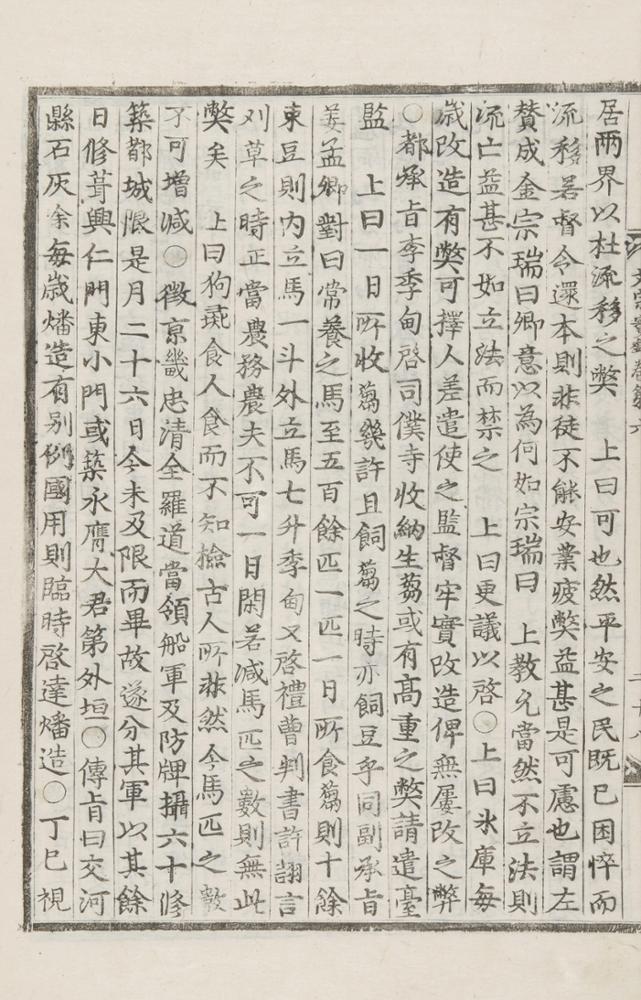 居兩界以杜流移之弊　上曰可也然平安之民旣已困悴而
流移若督令還本則非徒不能安業疲弊益甚是可慮也謂左
贊成金宗瑞曰卿意以爲何如宗瑞曰　上敎允當然不立法則
流亡益甚不如立法而禁之　上曰更議以啓○上曰氷庫每
歲改造有弊可擇人差遣使之監督牢實改造俾無屢改之弊
○都承旨李季甸啓司僕寺收納生蒭或有高重之弊請遣臺
監　上曰一日所收蒭幾許且飼蒭之時亦飼豆乎同副承旨
姜孟卿對曰常養之馬至五百餘匹一匹一日所食蒭則十餘
束豆則內立馬一斗外立馬七升季甸又啓禮曹判書許詡言
刈草之時正當農務農夫不可一日閑若減馬匹之數則無此
弊矣　上曰狗彘食人食而不知檢古人所非然今馬匹之數
不可增減○徵京畿忠淸全羅道當領船軍及防牌攝六十修
築都城限是月二十六日今未及限而畢故遂分其軍以其餘
日修葺興仁門東小門或築永膺大君第外垣○傳旨曰交河
縣石灰余每歲燔造有別例國用則臨時啓達燔造○丁巳視